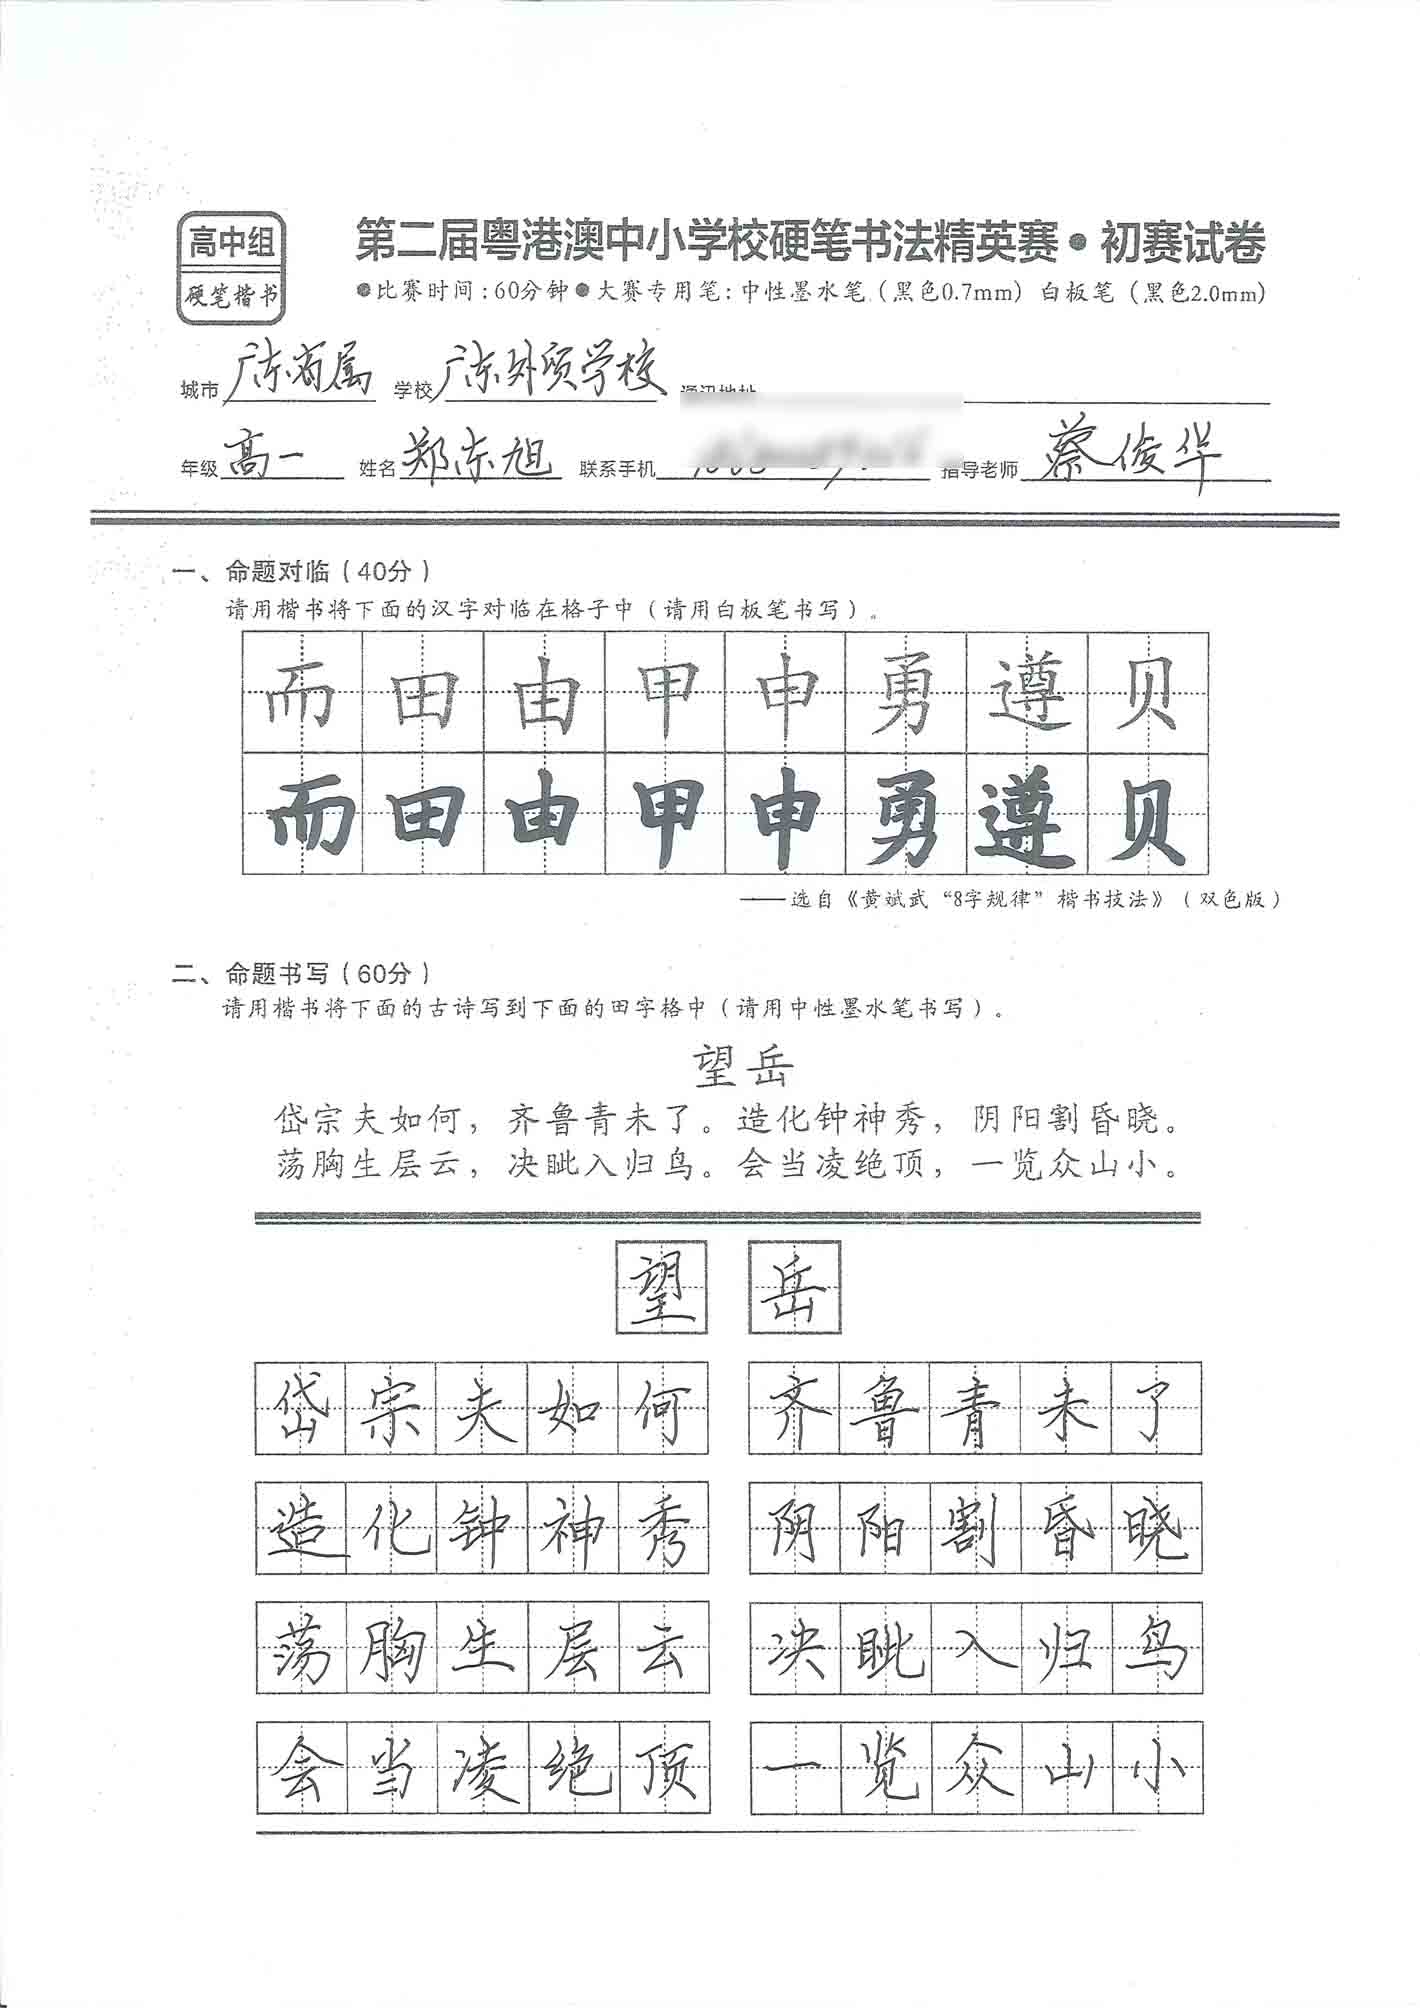 高中组
硬笔楷书
第二届粤港澳中小学校硬笔书法精英赛·初赛试卷
●比赛时间：60分钟●大赛专用笔：中性墨水笔（黑色0.7mm）白板笔（黑色2.0mm）
城市 广东省属 学校 广东外贸学校 通讯地址
年级 高一 姓名 郑东旭 联系手机 指导老师 蔡俊华
一、命题对临（40分）
请用楷书将下面的汉字对临在格子中（请用白板笔书写）。
而田由甲申勇遵贝
而田由甲申勇遵贝
——选自《黄斌武“8字规律”楷书技法》（双色版）
二、命题书写（60分）
请用楷书将下面的古诗写到下面的田字格中（请用中性墨水笔书写）。
望岳
岱宗夫如何，齐鲁青未了。造化钟神秀，阴阳割昏晓。
荡胸生层云，决眦入归鸟。会当凌绝顶，一览众山小。
望岳
岱宗夫如何 齐鲁青未了
造化钟神秀 阴阳割昏晓
荡胸生层云 决眦入归鸟
会当凌绝顶 一览众山小